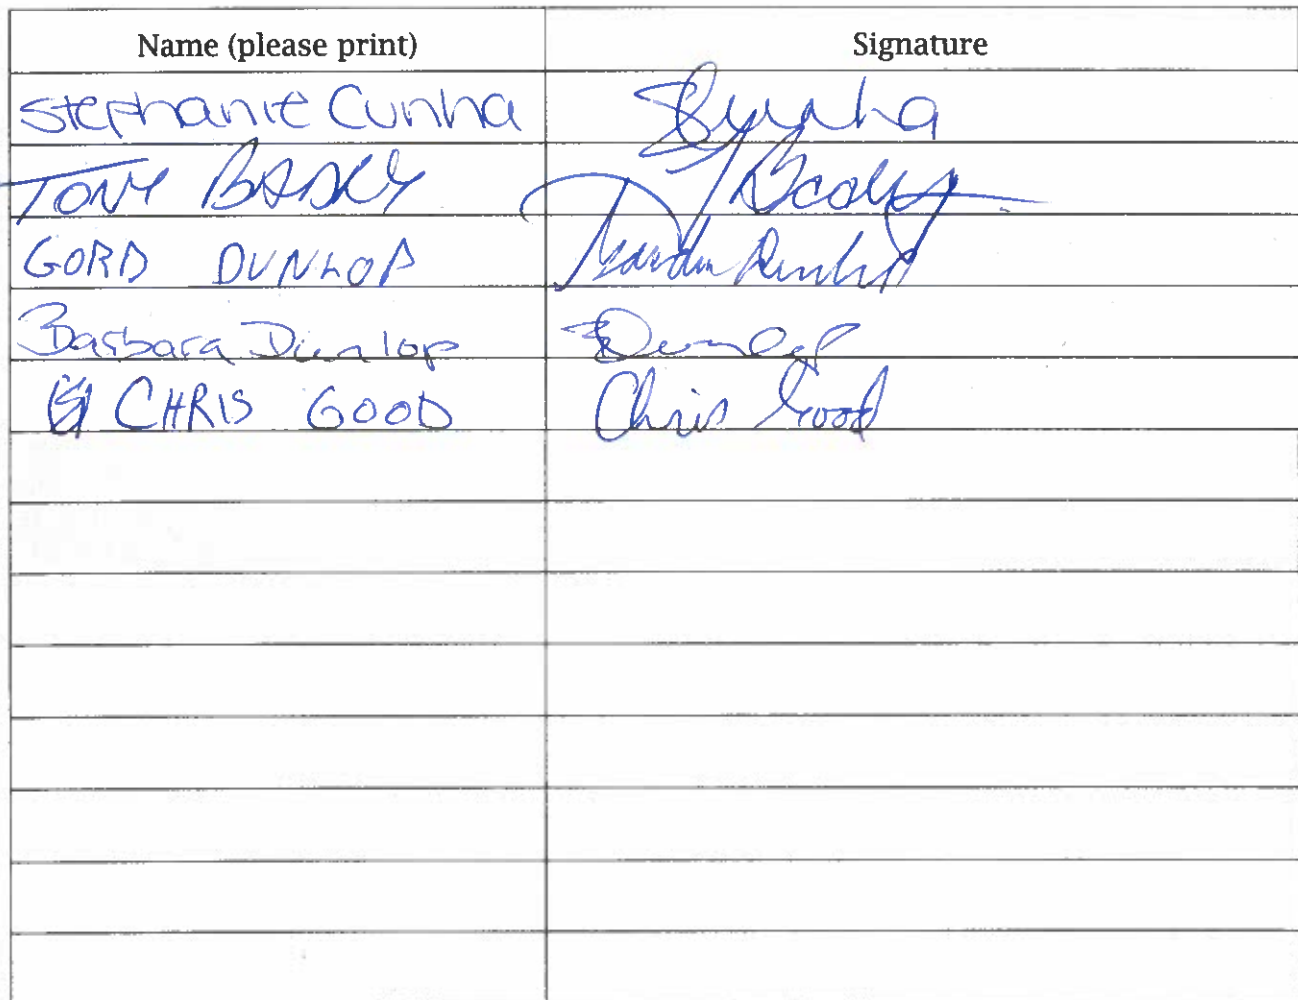 Name (please print) Signature
Stephanie Cunha SCunha
TONY
GORD DUNLOP Gordon Dunlop
Barbara Dunlop BDunlop
CHRIS GOOD Chris Good